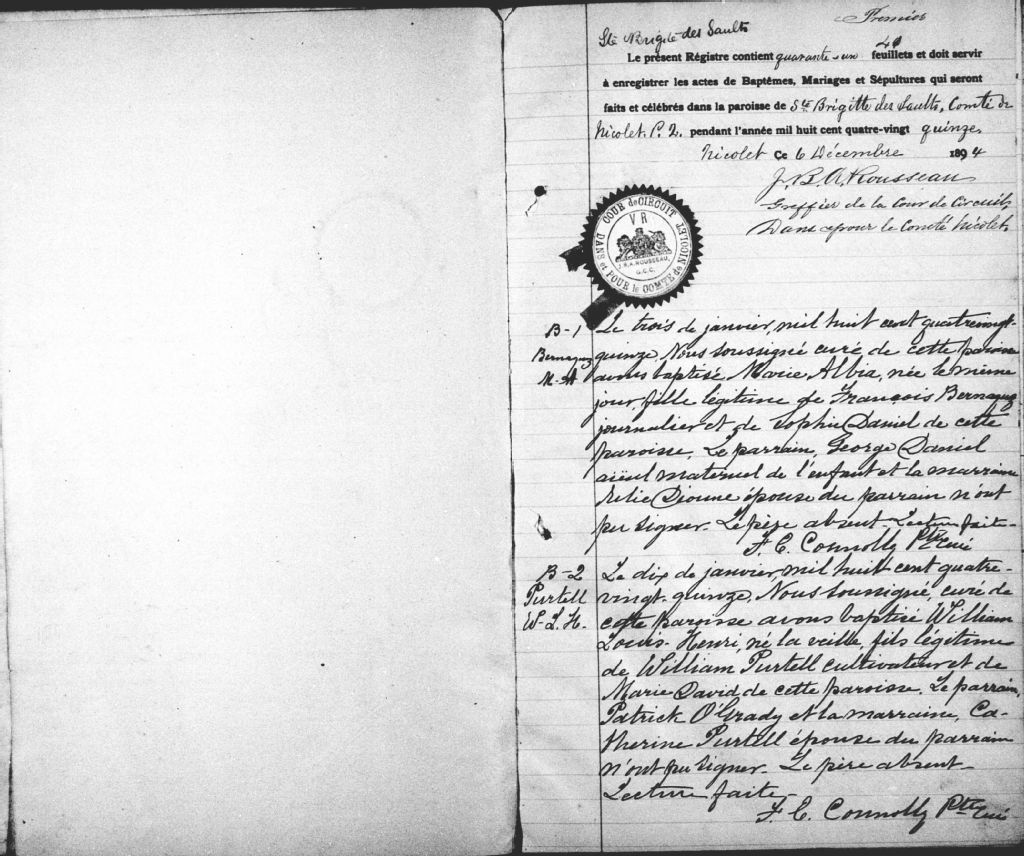 Premier
Ste Brigite des Saults
Le présent Régistre contient quarante-un 41 feuillets et doit servir
à enregistrer les actes de Baptêmes, Mariages et Sépultures qui seront
faits et célébrés dans la paroisse de Ste Brigitte des Saults, Comté de
Nicolet. P. Q. pendant l'année mil huit cent quatre-vingt quinze.
Nicolet Ce 6 Décembre 1894
J. B. A. Rousseau
Greffier de la Cour de Circuit,
Dans et pour le Comté Nicolet
COUR de CIRCUIT
DANS et POUR le COMTÉ de NICOLET
V R
J.B.A. ROUSSEAU,
G.C.C.
B-1
Bernaquez
M-A
Le trois de janvier, mil huit cent quatrevingt-
quinze, Nous soussigné curé de cette paroisse
avons baptisé Marie Albia, née le même
jour, fille légitime de François Bernaquez
journalier et de Sophie Daniel de cette
paroisse. Le parrain, George Daniel
aïeul maternel de l'enfant et la marraine
Dionne épouse du parrain n'ont
pu signer. Le père absent. Lecture faite-
F. E. Connolly Ptre Curé
B-2
Purtell
W-L.H.
Le dix de janvier, mil huit cent quatre-
vingt-quinze, Nous soussigné, curé de
cette paroisse avons baptisé William
Louis-Henri, né la veille, fils légitime
de William Purtell cultivateur et de
Marie David, de cette paroisse. Le parrain,
Patrick O'Grady et la marraine, Ca-
therine Purtell épouse du parrain
n'ont pu signer. Le père absent-
Lecture faite-
F. E. Connolly Ptre Curé